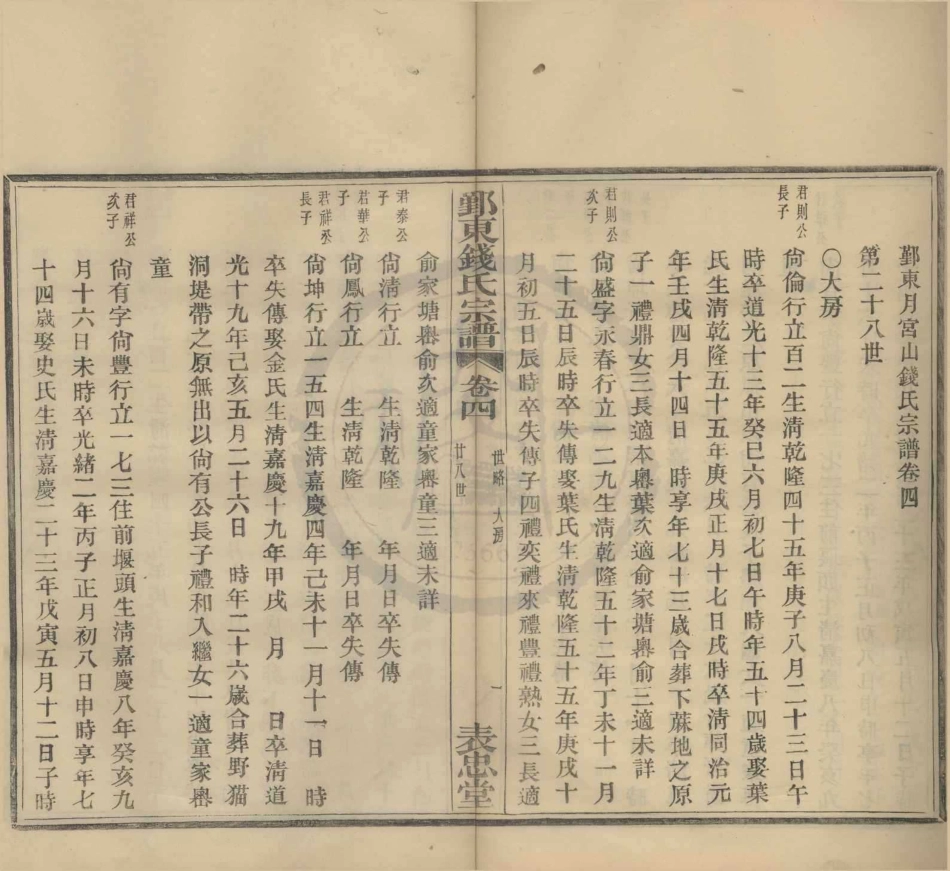 鄞東月宮山錢氏宗譜卷四
第二十八世
○大房
君則公長子
尙倫行立百二生淸乾隆四十五年庚子八月二十三日午
時卒道光十三年癸巳六月初七日午時年五十四歲娶葉
氏生淸乾隆五十五年庚戌正月十七日戌時卒淸同治元
年壬戌四月十四日 時享年七十三歲合葬下蔴地之原
子一禮鼎女三長適本嶴葉次適俞家塘嶴俞三適未詳
君則公次子
尙盛字永春行立一二九生淸乾隆五十二年丁未十一月
二十五日辰時卒失傳娶葉氏生淸乾隆五十五年庚戌十
月初五日辰時卒失傳子四禮奕禮來禮豐禮熟女三長適
鄞東錢氏宗譜 卷四 世略 大房 廿八世 一 表忠堂
俞家塘嶴俞次適童家嶴童三適未詳
君泰公子
尙淸行立 生淸乾隆 年月日卒失傳
君華公子
尙鳳行立 生淸乾隆 年月日卒失傳
君祥公長子
尙坤行立一五四生淸嘉慶四年己未十一月十一日 時
卒失傳娶金氏生淸嘉慶十九年甲戌 月 日卒淸道
光十九年己亥五月二十六日 時年二十六歲合葬野猫
洞堤帶之原無出以尙有公長子禮和入繼女一適童家嶴
童
君祥公次子
尙有字尙豐行立一七三住前堰頭生淸嘉慶八年癸亥九
月十六日未時卒光緒二年丙子正月初八日申時享年七
十四歲娶史氏生淸嘉慶二十三年戊寅五月十二日子時